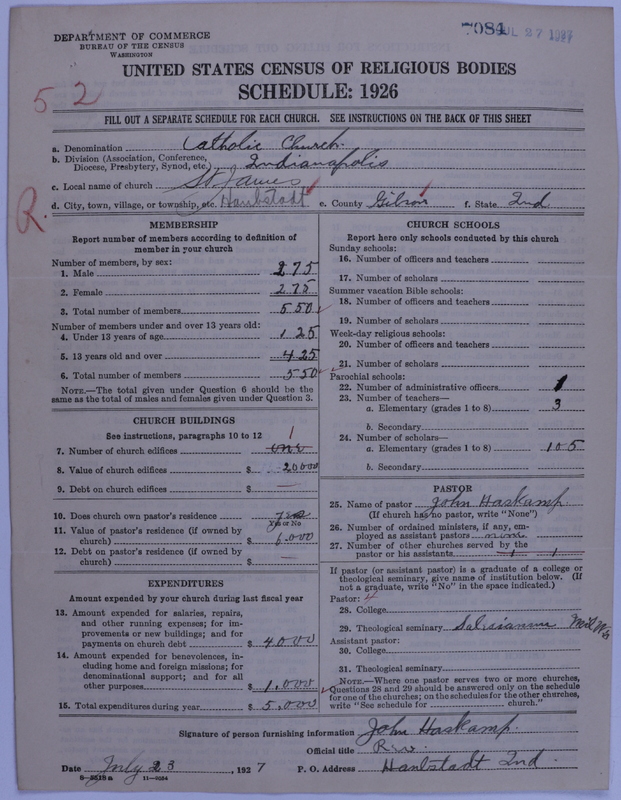 7084 JUL 27 1927
DEPARTMENT OF COMMERCE
BUREAU OF THE CENSUS
WASHINGTON
UNITED STATES CENSUS OF RELIGIOUS BODIES
SCHEDULE: 1926
52
FILL OUT A SEPARATE SCHEDULE FOR EACH CHURCH. SEE INSTRUCTIONS ON THE BACK OF THIS SHEET
a. Denomination Catholic Church.
b. Division (Association, Conference, Diocese, Presbytery, Synod, etc.) Indianapolis
c. Local name of church St James
R.
d. City, town, village, or township, etc. Haubstadt e. County Gibson f. State Ind
MEMBERSHIP
Report number of members according to definition of
member in your church
Number of members, by sex:
1. Male 275
2. Female 275
3. Total number of members 550
Number of members under and over 13 years old:
4. Under 13 years of age 125
5. 13 years old and over 425
6. Total number of members 550
NOTE.—The total given under Question 6 should be
same as the total of males and females given under Question 3.
CHURCH BUILDINGS
See instructions, paragraphs 10 to 12
1
7. Number of church edifices one
8. Value of church edifices $ 20000
9. Debt on church edifices $ —
10. Does church own pastor's residence yes
Yes or No
11. Value of pastor's residence (if owned by
church) $ 6.000
12. Debt on pastor's residence (if owned by
church) $ —
EXPENDITURES
Amount expended by your church during last fiscal year
13. Amount expended for salaries, repairs,
and other running expenses; for im-
provements or new buildings; and for
payments on church debt $ 4000
14. Amount expended for benevolences, in-
cluding home and foreign missions; for
denominational support; and for all
other purposes $ 1.000
15. Total expenditures during year $ 5.000
CHURCH SCHOOLS
Report here only schools conducted by this church
Sunday schools:
16. Number of officers and teachers
17. Number of scholars
Summer vacation Bible schools:
18. Number of officers and teachers
19. Number of scholars
Week-day religious schools:
20. Number of officers and teachers
21. Number of scholars
Parochial schools:
22. Number of administrative officers 1
23. Number of teachers—
a. Elementary (grades 1 to 8) 3
b. Secondary
24. Number of scholars—
a. Elementary (grades 1 to 8) 105
b. Secondary
PASTOR
25. Name of pastor John Haskamp
(If church has no pastor, write "None")
26. Number of ordained ministers, if any, em-
ployed as assistant pastors none
27. Number of other churches served by the
pastor or his assistants 1 1
If pastor (or assistant pastor) is a graduate of a college or
theological seminary, give name of institution below. (If
not a graduate, write "No" in the space indicated.)
Pastor: 4
28. College
29. Theological seminary Salesianum Mil Wis
Assistant pastor:
30. College
31. Theological seminary
NOTE.—Where one pastor serves two or more churches,
Questions 28 and 29 should be answered only on the schedule
for one of the churches; on the schedules for the other churches,
write "See schedule for church."
Signature of person furnishing information John Haskamp
Official title Rev.
Date July 23, 1927 P. O. Address Haubstadt Ind.
8-2518a 11-9224